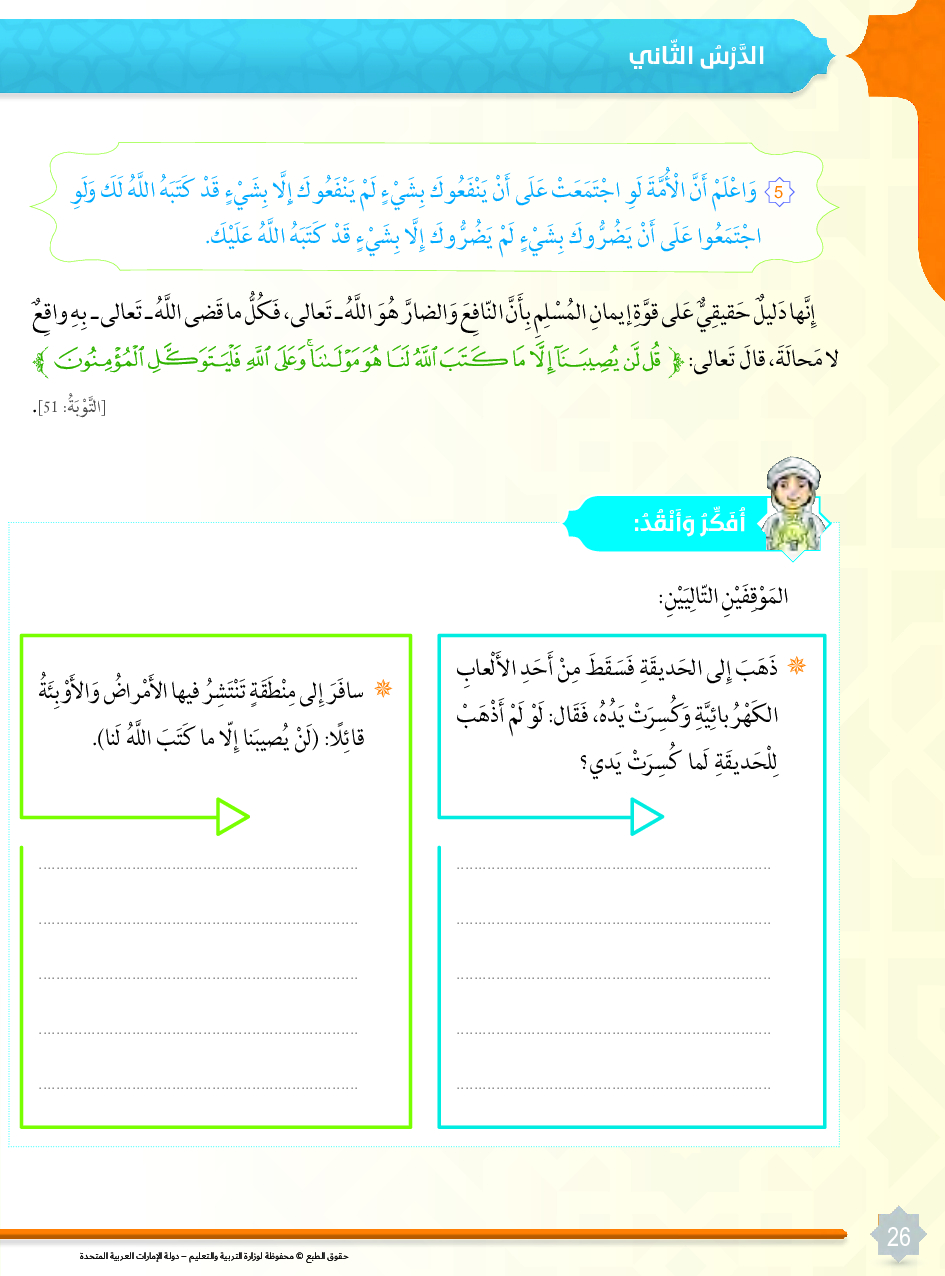 الدَّرْسُ الثّاني
5 وَاعْلَمْ أَنَّ الْأُمَّةَ لَوِ اجْتَمَعَتْ عَلَى أَنْ يَنْفَعُوكَ بِشَيْءٍ لَمْ يَنْفَعُوكَ إِلَّا بِشَيْءٍ قَدْ كَتَبَهُ اللَّهُ لَكَ وَلَوِ
اجْتَمَعُوا عَلَى أَنْ يَضُرُّوكَ بِشَيْءٍ لَمْ يَضُرُّوكَ إِلَّا بِشَيْءٍ قَدْ كَتَبَهُ اللَّهُ عَلَيْكَ.
إِنَّها دَليلٌ حَقيقِيٌّ عَلى قوَّةِ إيمانِ المُسْلِمِ بِأَنَّ النّافِعَ وَالضارَّ هُوَ اللَّهُ ـ تَعالى، فَكُلُّ ما قَضى اللَّهُ ـ تَعالى ـ بِهِ واقِعٌ
لا مَحالَةَ، قالَ تَعالى: ﴿ قُل لَّن يُصِيبَنَآ إِلَّا مَا كَتَبَ ٱللَّهُ لَنَا هُوَ مَوْلَىٰنَا ۚ وَعَلَى ٱللَّهِ فَلْيَتَوَكَّلِ ٱلْمُؤْمِنُونَ ﴾
[التَّوْبَةُ: 51].
أُفَكِّرُ وَأَنْقُدُ:
المَوْقِفَيْنِ التّالِيَيْنِ:
ذَهَبَ إِلى الحَديقَةِ فَسَقَطَ مِنْ أَحَدِ الأَلْعابِ
الكَهْرُبائِيَّةِ وَكُسِرَتْ يَدُهُ، فَقَال: لَوْ لَمْ أَذْهَبْ
لِلْحَديقَةِ لَما كُسِرَتْ يَدي؟
سافَرَ إِلى مِنْطَقَةٍ تَنْتَشِرُ فيها الأَمْراضُ وَالأَوْبِئَةُ
قائِلًا: (لَنْ يُصيبَنا إِلّا ما كَتَبَ اللَّهُ لَنا).
26
حقوق الطبع © محفوظة لوزارة التربية والتعليم – دولة الإمارات العربية المتحدة